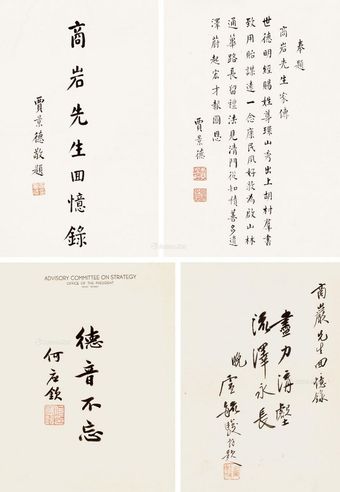 商岩先生回憶錄
賈景德敬題
奉題
商岩先生家傳
世德明經賜姓尊環山秀出上胡村羣書
致用貽謀遠一念康民風好敦為啟山林
通蓽路長留禮法見清門從知積善多遺
澤蔚起宏才報國恩
賈景德
ADVISORY COMMITTEE ON STRATEGY
OFFICE OF THE PRESIDENT
德音不忘
何應欽
商巖先生回憶錄
盡力溝壑
流澤永長
晚盧毓駿敬題